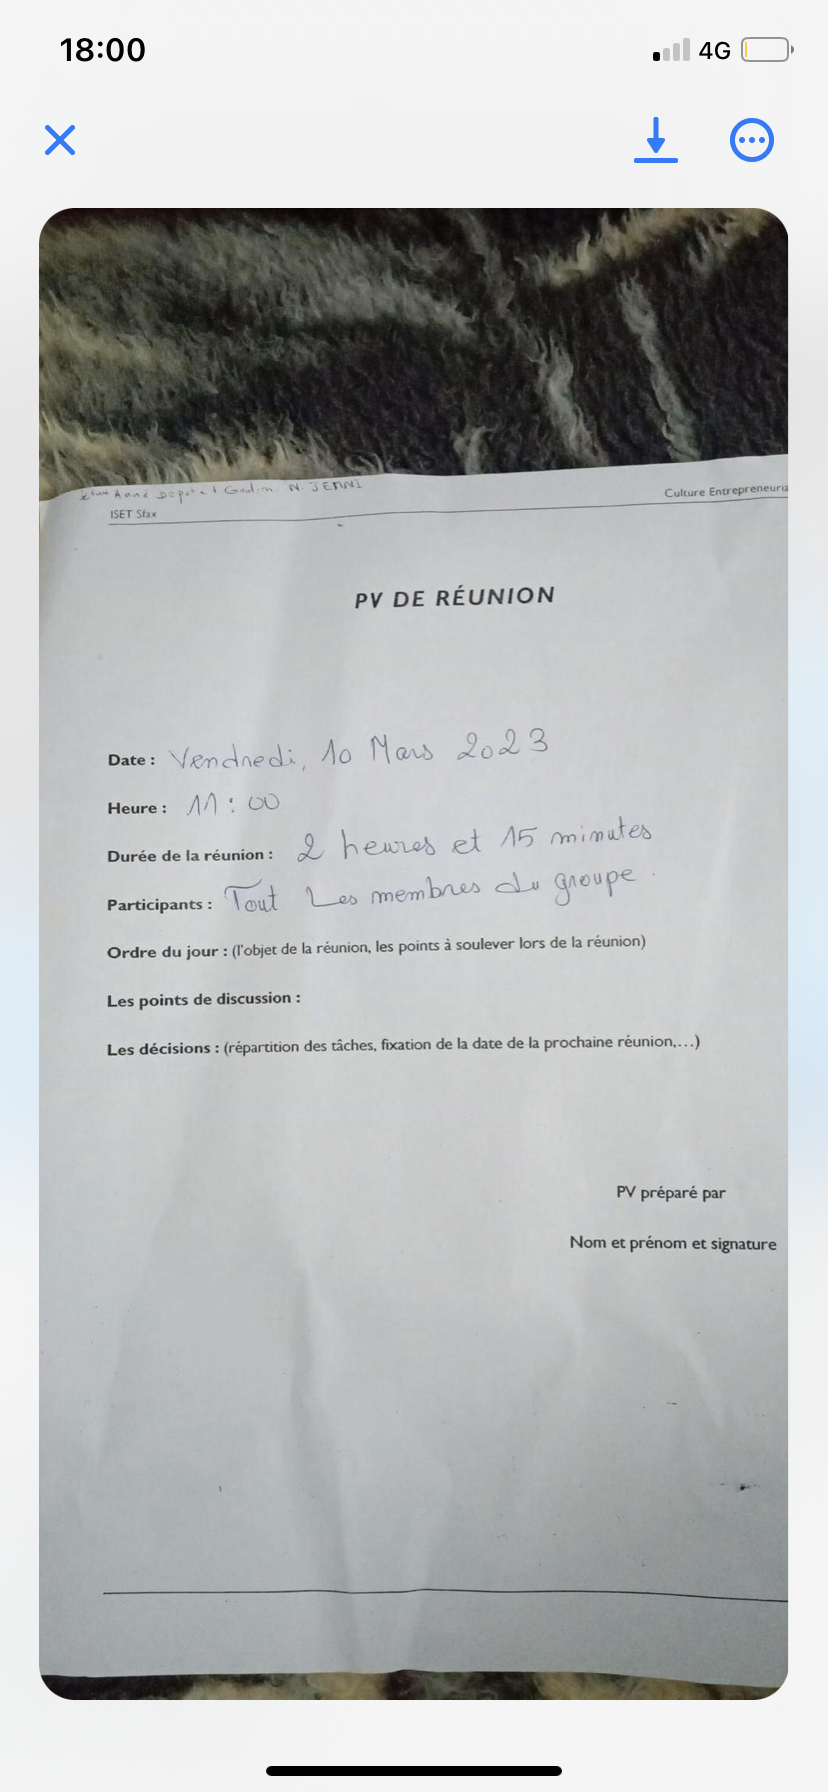 18:00
4G
2ème Année Dépt Gestion N. JEMNI
Culture Entrepreneuria
ISET Sfax
PV DE RÉUNION
Date : Vendredi, 10 Mars 2023
Heure : 11 : 00
Durée de la réunion : 2 heures et 15 minutes
Participants : Tout Les membres du groupe.
Ordre du jour : (l'objet de la réunion, les points à soulever lors de la réunion)
Les points de discussion :
Les décisions : (répartition des tâches, fixation de la date de la prochaine réunion,…)
PV préparé par
Nom et prénom et signature